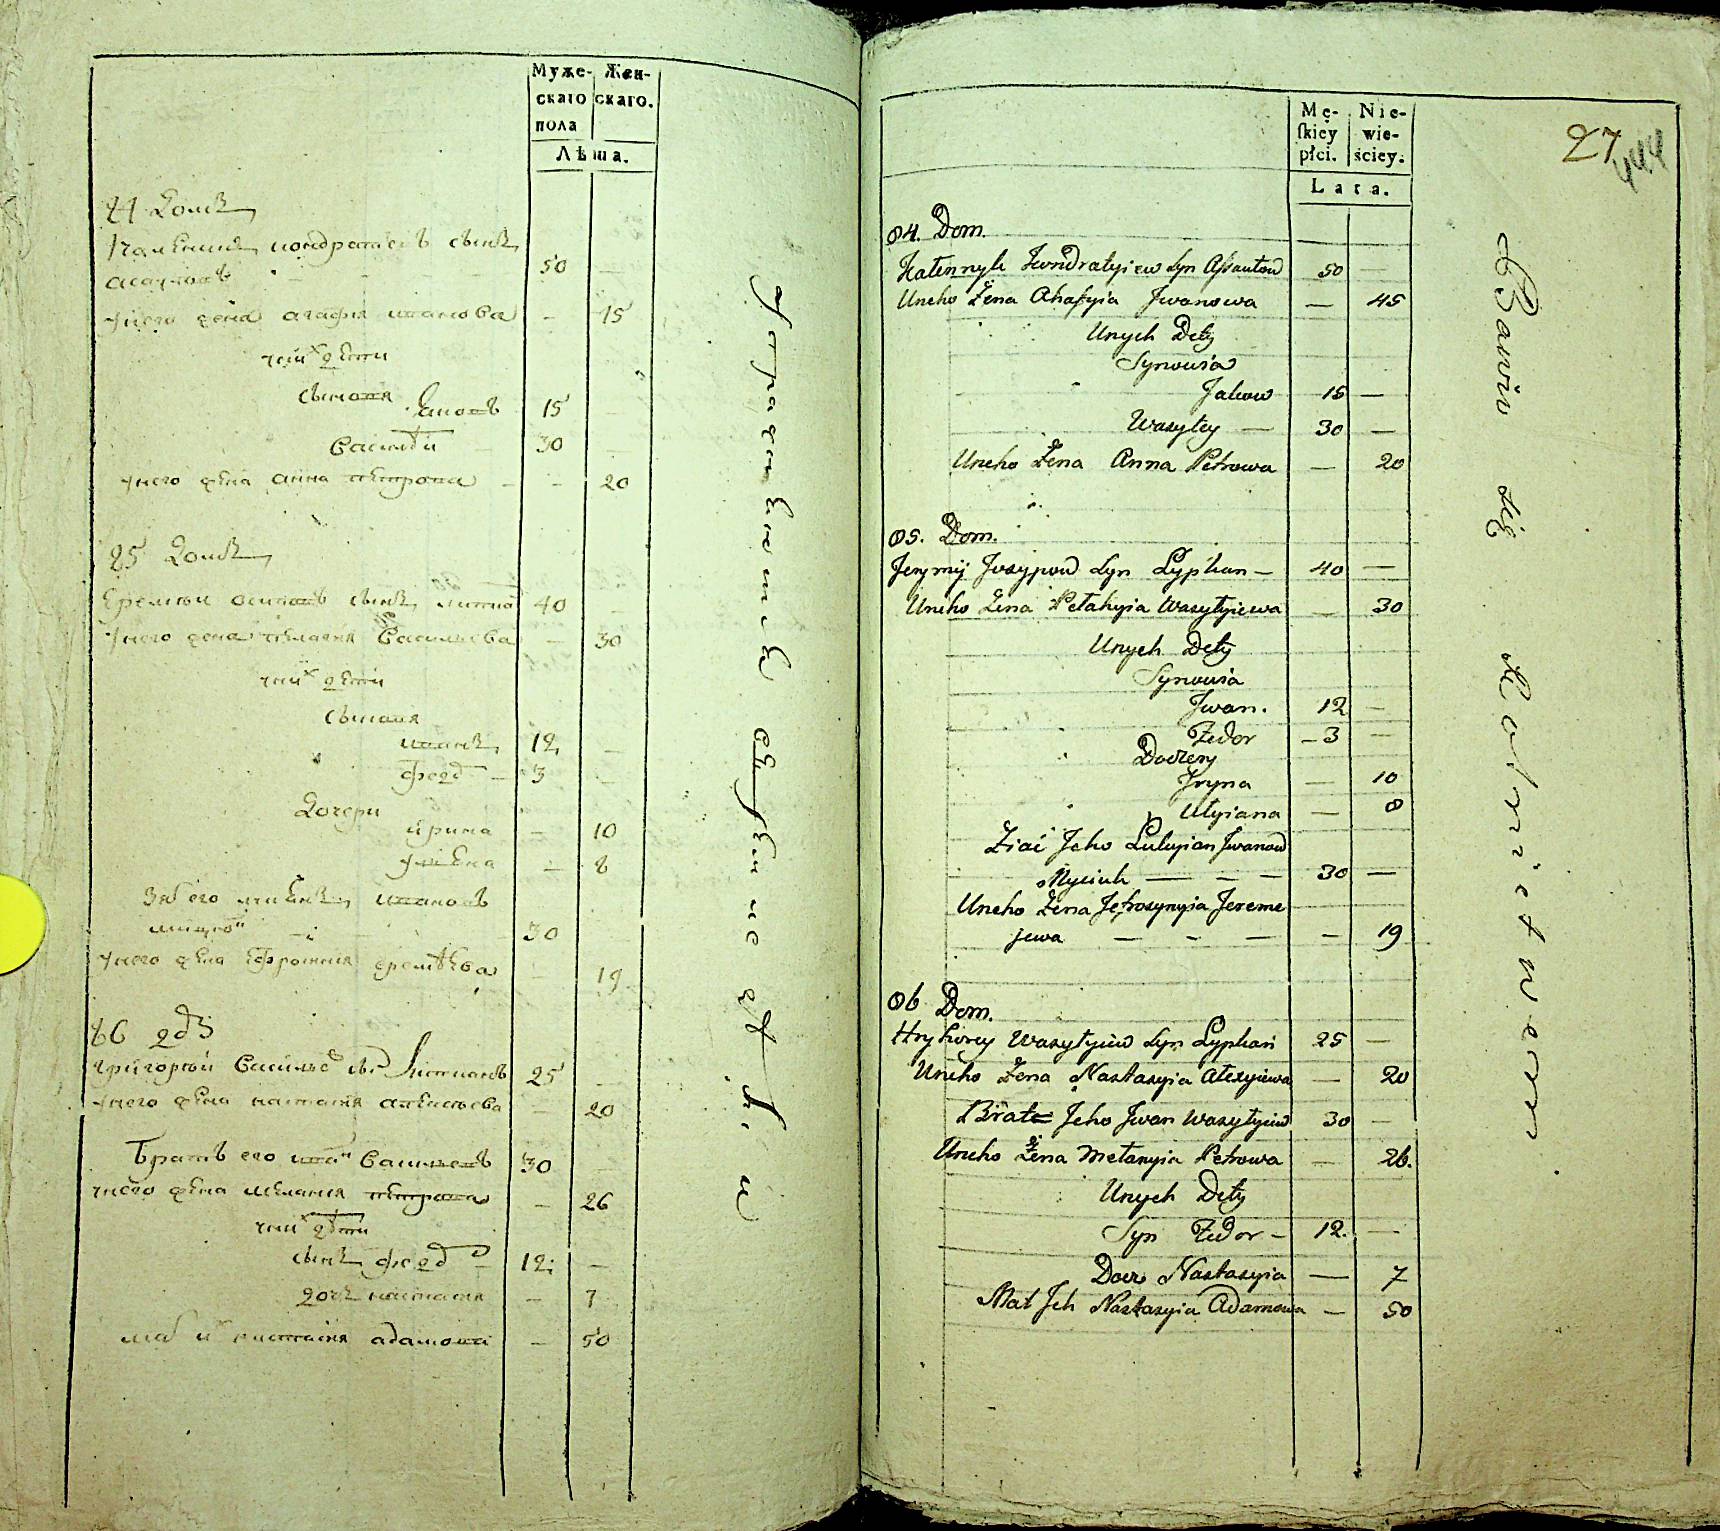 Муже- Жен-
скаго скаго.
пола
Лѣта.
24 Домъ
50 —
асауловъ
унего жена агафия иванова — 15
унихъ дѣти
сыновя
Яковъ 15 —
Василѣй 30 —
унего жена анна петрова — 20
25 Домъ
Еремѣй осиповъ сынъ 40 —
унего жена пелагия Васильева — 30
унихъ дѣти
сыновя
иванъ 12 —
федо 3 —
Дочери
ирина — 10
улиана — 8
иванов
30
унего жена Ефросиния еремѣева — 19
26
григорей Василев с. Липкановъ 25 —
унего жена настасия алексѣева — 20
Братъ его иван Васильевъ 30 —
унего жена мелания петрова — 26
унихъ дѣти
сынъ федо 12 —
дочь настасия — 7
мат их настасия адамова — 50
Mę- Nie-
skiey wie-
płci. ściey.
Lata.
27
444
84. Dom.
Kalennyk Kondratyiew Syn Assautow 50 —
Uneho Żena Ahafyia Jwanowa — 45
Unych Dety
Synowia
Jakow 15 —
Wasyley — 30 —
Uneho Żena Anna Petrowa — 20
85. Dom.
Jerymij Jusypow Syn Lypkan — 40 —
Uneho Żena Pelahyia Wasylyiewa — 30
Unych Dety
Synowia
Jwan. 12 —
Fedor — 3 —
Doczery
Jryna — 10
Ulyiana — 8
Ziat Jeho Lukyian Jwanow
— — — 30 —
Uneho Żena Jefrosynyia Jereme
jewa — — — — 19
86 Dom.
Hryhorey Wasylyiew Syn Lypkan 25 —
Uneho Żena Nastasyia Alexyiewa — 20
Brat Jeho Jwan Wasylyiew 30 —
Uneho Żena Melanyia Petrowa — 26.
Unych Dety
Syn Fedor — 12. —
Docz Nastasyia — 7
Mat Jch Nastasyia Adamowa — 50
Bawio się Rolnictwem.